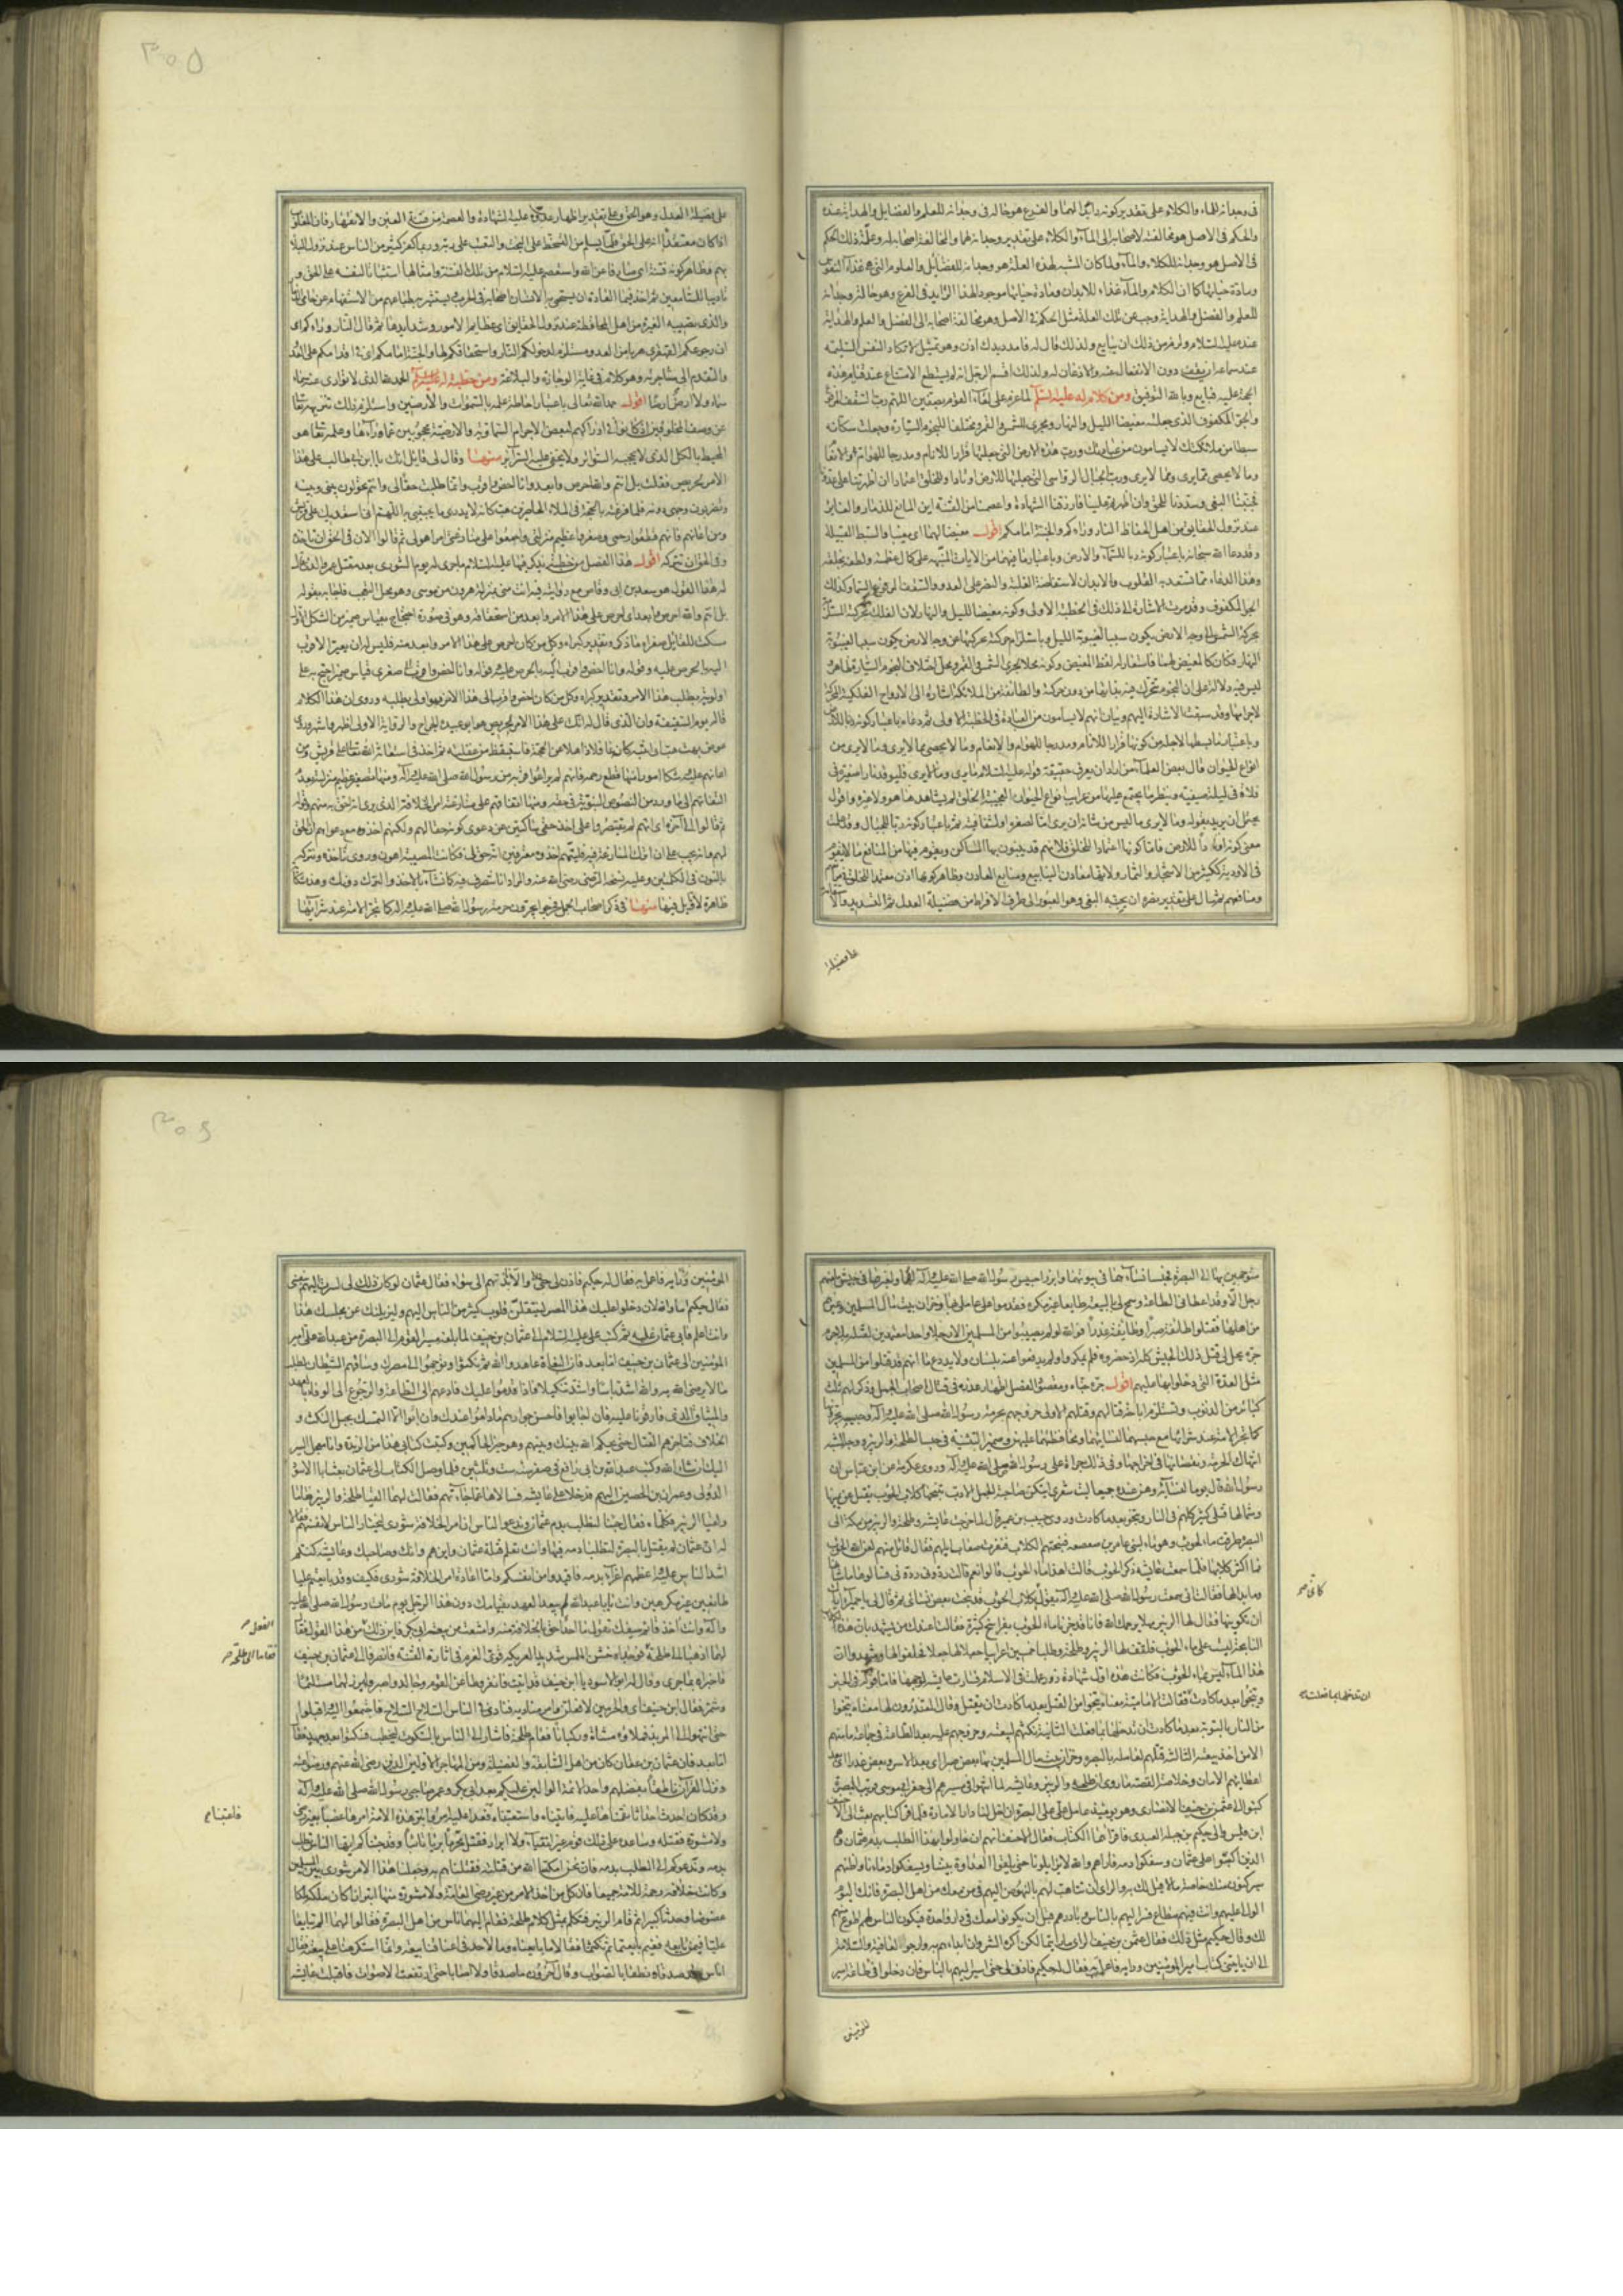 فى وجدانه للماء والكلاء على تقدير كونه رائدا لهما والفرع هو حاله فى وجدانه للعلم والفضايل والهداية عنده
والحكم فى الاصل هو مخالفته لاصحابه الى الماء والكلاء على تقدير وجدانه لهما والمخالفة اصحابه له وعلة ذلك الحكم
فى الاصل هو وجدانه للكلاء والماء ولما كان المشبه لهذه العلة هو وجدانه للفضايل والعلوم التى هى غذاء النفوس
ومادة حياتها كما ان الكلاء والماء غذاء للابدان ومادة حياتها موجود لهذا الرايد فى الفرع وهو حاله وجدانه
للعلم والفضل والهداية وجب عن تلك العلة مثل الحكم فى الاصل وهو مخالفة اصحابه الى الفضل والعلم والهداية
عنده عليه السلام ولزم من ذلك ان يبايع ولذلك قال له فامدد يدك اذن وهو تمثيل لا تكاد النفس السليمه
عند سماعه ان يقف دون الانفعال عنه والاذعان له ولذلك اقسم الرجل انه لم يستطع الامتناع عند قيام هذه
الحجة عليه فبايع وبالله التوفيق ومن كلام له عليه السلم لما عزم على لقاء القوم بصفين اللهم رب السقف المرفوع
والجو المكفوف الذى جعلته مغيضا لليل والنهار ومجرى للشمس والقمر ومختلفا للنجوم السيارة وجعلت سكانه
سبطا من ملائكتك لا يسامون من عبادتك ورب هذه الارض التى جعلتها قرارا للانام ومدرجا للهوام والانعام
وما لا يحصى مما يرى ومما لا يرى ورب الجبال الرواسى التى جعلتها للارض اوتادا وللخلق اعتمادا ان اظهرتنا على عدونا
فجنبنا البغى وسددنا للحق وان اظهرتهم علينا فارزقنا الشهادة واعصمنا من الفتنة اين المانع للذمار والغاير
عند نزول الحقايق من اهل الحفاظ النار وراءكم والجنة امامكم اقول مغيضا لهما اى مغيبا والسبط القبيلة
وقد دعا الله سبحانه باعتبار كونه ربا للسماء والارض وباعتبار ما فيهما من الايات المنبهه على كمال عظمته ولطفه بخلقه
وهذا الدعاء مما تستعد به القلوب والابدان لاستفاضة الغلبة والنصر على العدو والسقف المرفوع السماء وكذلك
الجو المكفوف وقد مرت الاشارة الى ذلك فى الخطبة الاولى وكونه مغيضا لليل والنهار لان الفلك
بحركة الشمس الى وجه الارض يكون سببا لغيبوبة الليل وباستلزام حركته لحركتها عن وجه الارض يكون سببا لغيبوبة
النهار فكان كالمغيض لهما فاستعار له لفظ المغيض وكونه محلا لجرى الشمس والقمر ومحل اختلاف النجوم السيارة ظاهر
ليس فيه دلالة على ان النجوم تتحرك فيه بذاتها من دون حركته والطائفة من الملائكة اشارة الى الارواح الفلكية المحركة
لاجرامها وقد سبقت الاشارة اليهم وبيان انهم لا يسامون من العبادة فى الخطبة الاولى ثم دعاه باعتبار كونه ربا للارض
وباعتبار ما بسطها لاجله من كونها قرارا للانام ومدرجا للهوام والانعام وما لا يحصى مما لا يرى ومما لا يرى من
انواع الحيوان قال بعض العلماء من اراد ان يعرف حقيقة قوله عليه السلام ما يرى وما لا يرى فليوقد نارا صغيرة فى
فلاة فى ليلة صيفية وينظر ما يجتمع عليها من غرايب انواع الحيوان العجيبة الخلق لم يشاهدها هو ولا غيره واقول
يحتمل ان يريد بقوله وما لا يرى ما ليس من شانه ان يرى اما لصغره او لشفافيته ثم باعتبار كونه ربا للجبال وقد علمت
معنى كونه اوتادا للارض فاما كونها اعتمادا للخلق فلانهم قد يبنون بها المساكن ويقوم فيها من المنافع ما لا يقوم
فى الاودية ككثير من الاشجار والثمار ولانها معادن الينابيع ومنابع المعادن وظاهر كونها اذن معتمدا للخلق
ومنافعهم ثم سال على تقدير نصره ان يجنبه البغى وهو العبور الى طرف الافراط من فضيلة العدل ثم التسديد والاستقامة
على فضيلة
على فضيلة العدل وهو الحق وعلى تقدير اظهار عدوه عليه الشهادة والعصمة من فتنة الغبن والانقهار فان المغلوب
اذا كان معتقدا انه على الحق قلما يسلم من السخط على البخت والتعتب على ربه وربما كفر كثير من الناس عند نزول البلاء
بهم فظاهر كونه فتنة اى صارفا عن الله واستعصم عليه السلام من تلك الفتنة وامثالها استثباتا لنفسه على الحق و
تاديبا للسامعين ثم اخذ فيما العادة ان يستحمى به الانسان اصحابه فى الحرب ويستثير به طباعهم من الاستفهام عن حامى الذمار
والذى تصيبه الغيرة من اهل المحافظة عند نزول الحقايق اى عظايم الامور وشدايدها ثم قال النار وراءكم اى
ان رجوعكم القهقرى هربا من العدو مستلزم لدخولكم النار واستحقاقكم لها والجنة امامكم اى فى اقدامكم على العدو
والتقدم الى مناجزته وهو كلام فى غاية الوجازة والبلاغة ومن خطبة له عليه السلم الحمد لله الذى لا توارى عنه سماء
سماء ولا ارض ارضا اقول حمد الله تعالى باعتبار احاطة علمه بالسموات والارضين واستلزم ذلك تنزيهه تعالى
عن وصف المخلوقين اذ كانوا فى ادراكهم لبعض الاجرام السماوية والارضية محجوبين عما وراءها وعلمه تعالى هو
المحيط بالكل الذى لا يحجبه السواتر ولا يخفى عليه السرائر منها وقال لى قائل انك يا ابن ابى طالب على هذا
الامر لحريص فقلت بل انتم والله احرص وابعد وانا اخص واقرب وانما طلبت حقا لى وانتم تحولون بينى وبينه
وتضربون وجهى دونه فلما قرعته بالحجة فى الملاء الحاضرين هب كانه لا يدرى ما يجيبنى به اللهم انى استعديك على قريش
ومن اعانهم فانهم قطعوا رحمى وصغروا عظيم منزلتى واجمعوا على منازعتى امرا هو لى ثم قالوا الا ان فى الحق ان تاخذه
وفى الحق ان تتركه اقول هذا الفصل من خطبة يذكر فيها عليه السلام ماجرى له يوم الشورى بعد مقتل عمر والذى قال
له هذا القول هو سعد بن ابى وقاص مع روايته فيه انت منى بمنزلة هرون من موسى وهو محل التعجب فاجابه بقوله
بل انتم والله احرص وابعد اى احرص على هذا الامر وابعد من استحقاقه وهو فى صورة احتجاج بقياس ضمير من الشكل الاول
سكت للقايل صغراه ما ذكر وتقدير كبراه وكل من كان احرص على هذا الامر وابعد منه فليس له ان يعير الاقرب
اليه بالحرص عليه وقوله وانا اخص واقرب صغرى قياس ضمير احتج به على
اولويته بطلب هذا الامر وتقدير كبراه وكل من كان اخص واقرب الى هذا الامر فهو اولى بطلبه وروى ان هذا الكلام
قاله يوم السقيفة وان الذى قال له انك على هذا الامر لحريص هو ابو عبيدة بن الجراح والرواية الاولى اظهر واشهر وروى
عوض بهت هب اى انتبه كان غافلا ذاهلا عن الحجة فاستيقظ من غفلته ثم اخذ فى استعانة الله تعالى على قريش ومن
اعانهم عليه وشكا امورا منها قطع رحمه فانهم لم يراعوا قربه من رسول الله صلى الله عليه وآله ومنها تصغير عظيم منزلته بعدم
التفاتهم الى ما ورد من النصوص النبوية فى حقه ومنها اتفاقهم على منازعته امر الخلافة الذى يرى انه احق به منهم وقوله
ثم قالوا الى آخره اى انهم لم يقتصروا على اخذ حقى ساكتين عن دعوى كونه حقا لهم ولكنهم اخذوه مع دعواهم ان الحق
لهم وانه يجب على ان اترك المنازعة فيه فليتهم اخذوه معترفين انه حق لى فكانت المصيبة اهون وروى ناخذه ونتركه
بالنون فى الكلمتين وعليه نسخة الرضى رضى الله عنه والمراد انا نتصرف فيه كما نشاء بالاخذ والترك دونك وهذه شكاية
ظاهرة لا تاويل فيها منها فى ذكر اصحاب الجمل فخرجوا يجرون حرمة رسول الله صلى الله عليه وآله كما تجر الامة عند شرائها
متوجهين بها الى البصرة فحبسا نساءهما فى بيوتهما وابرزا حبيس رسول الله صلى الله عليه وآله لهما ولغيرهما فى جيش ما منهم
رجل الا وقد اعطانى الطاعة وسمح لى بالبيعة طايعا غير مكره فقدموا على عاملى بها وخزان بيت مال المسلمين وغيرهم
من اهلها فقتلوا طائفة صبرا وطائفة غدرا فوالله لو لم يصيبوا من المسلمين الا رجلا واحدا معتمدين لقتله بلا جرم
جره لحل لى قتل ذلك الجيش كله اذ حضروه فلم ينكروا ولم يدفعوا عنه بلسان ولا يد دع ما انهم قد قتلوا من المسلمين
مثل العدة التى دخلوا بها عليهم اقول جره جناه ومقصود الفصل اظهار عذره فى قتال اصحاب الجمل وذكر لهم ثلث
كبائر من الذنوب وتستلزم اباحة قتالهم وقتلهم الاولى خروجهم بحرمة رسول الله صلى الله عليه وآله وحبيسه يجرونها
كما تجر الامة عند شرائها مع حبسهما لنسائهما ومحافظتهما عليهن وضمير التثنية فى حبسا لطلحة والزبير ووجه الشبه
انتهاك الحرمة ونقصانها فى اخراجها وفى ذلك جراة على رسول الله صلى الله عليه وآله وروى عكرمة عن ابن عباس ان
رسول الله قال يوما لنسائه وهن عنده جميعا ليت شعرى ايتكن صاحبة الجمل الادبب تنبحها كلاب الحوءب يقتل عن يمينها
وشمالها قتلى كثيرة كلهم فى النار وتنجو بعد ما كادت وروى حبيب بن عمير قال لما خرجت عائشه وطلحة والزبير من مكة الى
البصرة طرقت ماء الحوءب وهو ماء لبنى عامر بن صعصعه فنبحتهم الكلاب فنفرت صعاب ابلهم فقال قائل منهم لعن الله الحوءب
فما اكثر كلابها فلما سمعت عائشه ذكر الحوءب قالت اهذا ماء الحوءب قالوا نعم قالت ردونى ردونى فسالوها ما شانها
وما بدا لها فقالت انى سمعت رسول الله صلى الله عليه وآله يقول كلاب الحوءب قد نبحت بعض نسائى ثم قال لى يا حميراء اياك
ان تكونيها فقال لها الزبير مهلا يرحمك الله فانا قد جزنا ماء الحوءب بفراسخ كثيرة فقالت اعندك من يشهد بان هذه الكلاب
النابحة ليست على ماء الحوءب فلفق لها الزبير وطلحة وطلبا خمسين اعرابيا جعلا لهم جعلا فحلفوا لها وشهدوا ان
هذا الماء ليس بماء الحوءب فكانت هذه اول شهادة زور علمت فى الاسلام فسارت عائشه لوجهها فاما قوله فى الخبر
وتنجوا بعد ما كادت فقالت الامامية معناه تنجوا من القتل بعد ما كادت ان تقتل وقال المعتذرون لها معناه تنجوا
من النار بالتوبة بعد ما كادت ان تدخلها بما فعلت الثانية نكثهم لبيعته وخروجهم عليه بعد الطاعة فى جماعة ما منهم
الا من اخذ بيعته الثالثه قتلهم لعامله بالبصرة وخزان بيت مال المسلمين بها بعض صبرا اى بعد الاسر وبعض غدرا اى بعد
اعطائهم الامان وخلاصة القصة ما روى ان طلحه والزبير وعائشه لما انتهوا فى مسيرهم الى حفر ابى موسى قريب البصرة
كتبوا الى عثمن بن حنيف الانصارى وهو يومئذ عامل على على البصرة ان اخل لنا دار الامارة فلما قرا كتابهم بعث الى الاحنف
ابن قيس والى حكيم بن جبلة العبدى فاقراهما الكتاب فقال الاحنف انهم ان حاولوا بهذا الطلب بدم عثمان وهم
الذين اكبوا على عثمان وسفكوا دمه فاراهم والله لا يزايلونا حتى يلقوا العداوة بيننا ويسفكوا دماءنا واظنهم
سيركبون منك خاصة مالا قبل لك به والراى ان تتاهب لهم بالنهوض اليهم فى من معك من اهل البصرة فانك اليوم
الوالى عليهم وانت فيهم مطاع فسر اليهم بالناس وبادرهم قبل ان يكونوا معك فى دار واحدة فيكون الناس لهم اطوع منهم
لك وقال حكيم مثل ذلك فقال عثمن بن حنيف الراى ما رايتما لكن اكره الشر وان ابداهم به وارجو العافية والسلامة
الى ان ياتينى كتاب امير المؤمنين ورايه فاعمل به فقال له حكيم فاذن لى حتى اسير اليهم بالناس فان دخلوا فى طاعة امير
المؤمنين
كانى
ان تدخلها بما فعلت
المؤمنين ورايه فاعمل به فقال له حكيم فاذن لى حتى والا نابذتهم الى سواء فقال عثمان لو كان ذلك لى لسرت اليهم بنفسى
فقال حكيم اما والله لان دخلوا عليك هذا المصر لينتقلن قلوب كثير من الناس اليهم وليزيلنك عن مجلسك هذا
وانت اعلم فابى عثمان عليه ثم كتب على عليه السلام الى عثمان بن حنيف لما بلغه مسير القوم الى البصرة من عبد الله على امير
المؤمنين الى عثمان بن حنيف اما بعد فان البغاة عاهدوا الله ثم نكثوا وتوجهوا الى مصرك وساقهم الشيطان لطلب
مالا يرضى الله به والله اشد باسا واشد تنكيلا فاذا قدموا عليك فادعهم الى الطاعة والرجوع الى الوفاء بالعهد
والميثاق الذى فارقونا عليه فان اجابوا فاحسن جوارهم ماداموا عندك وان ابوا الا التمسك بحبل النكث و
الخلاف فناجزهم القتال حتى يحكم الله بينك وبينهم وهو خير الحاكمين وكتبت كتابى هذا من الربذة وانا معجل السير
اليك ان شاء الله وكتب عبيد الله بن ابى رافع فى صفر سنة ست وثلثين فلما وصل الكتاب الى عثمان بعث ابا الاسود
الدؤلى وعمران بن الحصين اليهم فدخلا على عايشه فسالاها عما جاء بهم فقالت لهما القيا طلحة والزبير فقاما
ولقيا الزبير فكلماه فقال جئنا لنطلب بدم عثمان وندعو الناس ان امر الخلافة شورى ليختار الناس لانفسهم فقالا
له ان عثمان لم يقتل بالبصرة لتطلبا دمه فيها وانت تعلم قتلة عثمان واين هم وانك وصاحبك وعايشه كنتم
اشد الناس عليه واعظمهم اغراء بدمه فاقيدوا من انفسكم واما اعادة امر الخلافة شورى فكيف وقد بايعتم عليا
طائعين غير مكرهين وانت يا ابا عبد الله لم يبعد العهد بقيامك دون هذا الرجل يوم مات رسول الله صلى الله عليه
وآله وانت اخذ قائم سيفك تقول ما احد احق بالخلافة منه وامتنعت من بيعة ابى بكر فاين ذلك من هذا القول فقال
لهما اذهبا الى طلحة فوجداه خشن الملمس شديد العريكة قوى العزم فى اثارة الفتنة فانصرفا الى عثمان بن حنيف
فاخبراه بما جرى وقال له ابو الاسود يا ابن حنيف قد اتيت فانفر وطاعن القوم وجالد واصبر وابرز لهما مستلئما
وشمر فقال ابن حنيف اى والحرمين لافعلن وامر مناديه فنادى فى الناس السلاح السلاح فاجتمعوا اليه واقبلوا
حتى انتهوا الى المربد فملاؤه مشاة وركبانا فقام طلحة فاشار الى الناس بالسكوت ليخطب فسكتوا بعد جهد فقال
اما بعد فان عثمان بن عفان كان من اهل السابقة والفضيلة ومن المهاجرين الاولين الذين رضى الله عنهم ورضوا عنه
ونزل القرآن ناطقا بفضلهم واحد الائمة الوالين عليكم بعد ابى بكر وعمر صاحبى رسول الله صلى الله عليه وآله
وقد كان احدث احداثا نقمناها عليه فاتيناه واستعتبناه فعدا عليه امرؤ ابتز هذه الامة امرها غصبا بغير رضى
ولا مشورة فقتله وساعده على ذلك قوم غير اتقياء ولا ابرار فقتل محرما بريئا تائبا وقد جئناكم ايها الناس نطلب
بدمه وندعوكم الى الطلب بدمه فان نحن امكننا الله من قتلته قتلناهم به وجعلنا هذا الامر شورى بين المسلمين
وكانت خلافة رحمة للامة جميعا فان كل من اخذ الامر من غير رضى العامة ولا مشورة منها ابتزازا كان ملكه ملكا
عضوضا وحدثا كبيرا ثم قام الزبير فتكلم بمثل كلام طلحة فقام اليهما ناس من اهل البصرة فقالوا لهما الم تبايعا
عليا فيمن بايعه ففيم بايعتما ثم نكثتما فقالا ما بايعناه وما لاحد فى اعناقنا بيعة وانما استكرهنا على بيعته فقال
اناس قد صدقا ونطقا بالصواب وقال آخرون ما صدقا ولا اصابا حتى ارتفعت الاصوات فاقبلت عايشه
القول
فقاما الى طلحة
فاعتبناه
٣٠٥
٣٠٦